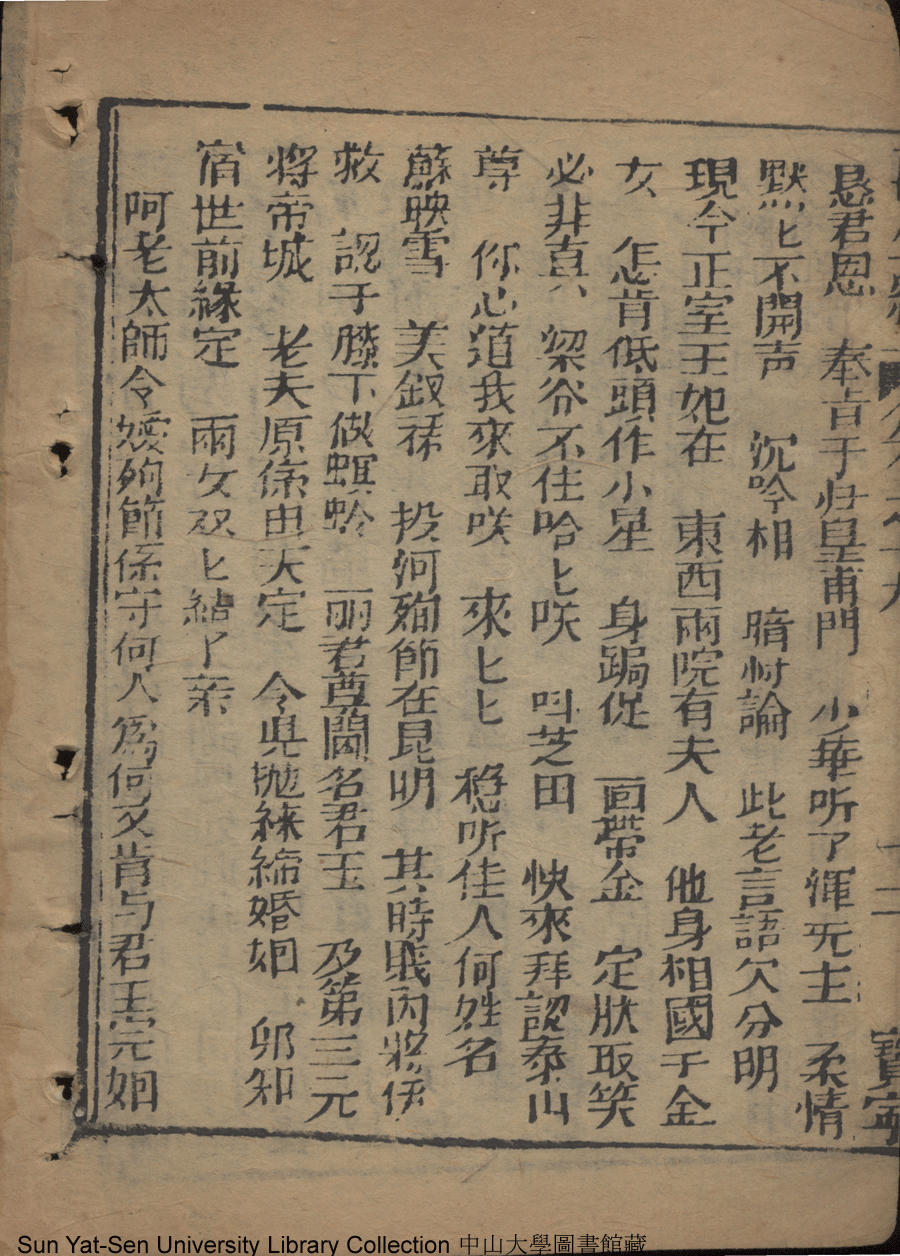 恳君恩　奉旨于归皇甫門　少華听了渾旡主　柔情
默匕不開声　沉吟相　暗忖論　此老言語欠分明
現今正室王妃在　東西兩院有夫人　他身相國千金
女　怎肯低頭作小星　身跼促　面帶金　定狀取笑
必非真　梁谷不住哈匕咲　呌芝田　快來拜認泰山
尊　你心道我來取咲　來匕匕　穏听佳人何姓名
蘇映雪　美釵裙　投河殉節在昆明　其時賤内將伊
救　認于膝下做螟蛉　丽君尊閫名君玉　及第三元
將帝城　老夫原係由天定　令㒷抛綵締婚姻　邜知
宿世前緣定　兩女双匕結了亲
呵老太師令嬡殉節係守何人爲何又肯与君玉完姻
寶寧
Sun Yat-Sen University Library Collection 中山大學圖書館藏